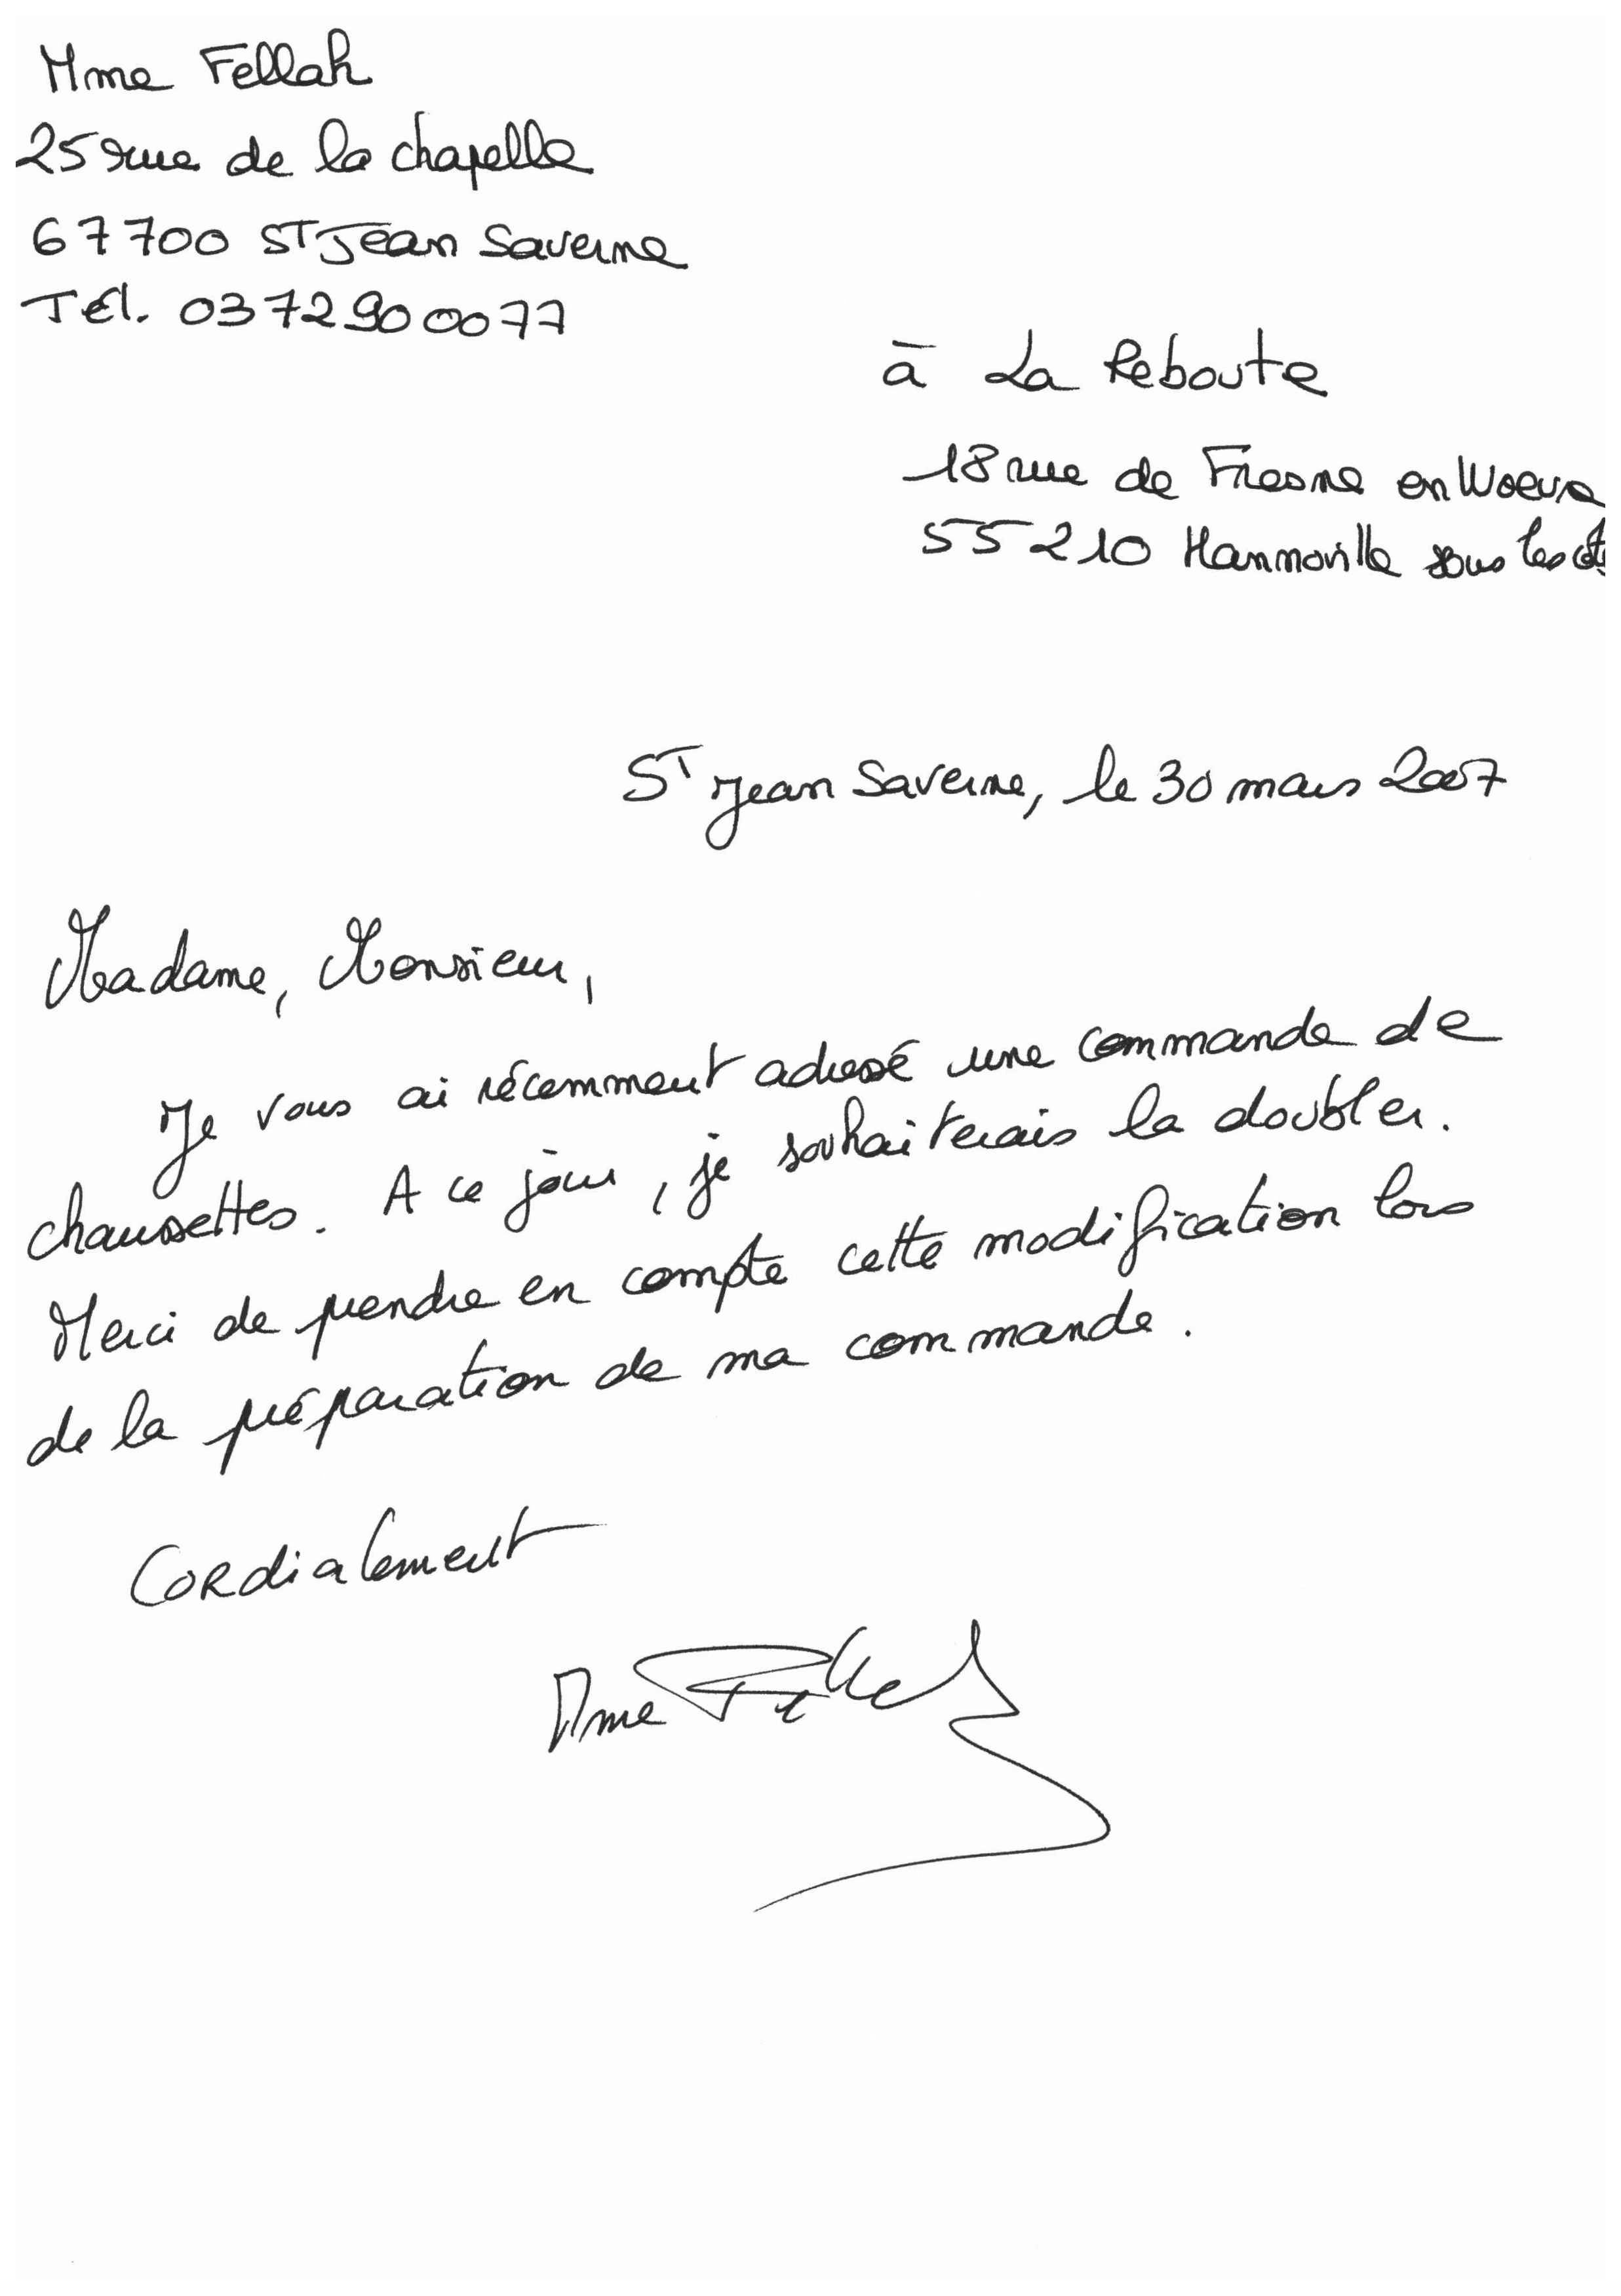 Mme Fellah
25 rue de la chapelle
67700 ST Jean Saverne
Tél. 0372900077
à La Reboute
18 rue de Fresne en Woevre
55210 Hannonville sous les
ST Jean Saverne, le 30 mars 2007
Madame, Monsieur,
Je vous ai récemment adressé une commande de
chaussettes. A ce jour, je souhaiterais la doubler.
Merci de prendre en compte cette modification lors
de la préparation de ma commande.
Cordialement
Mme Fellah